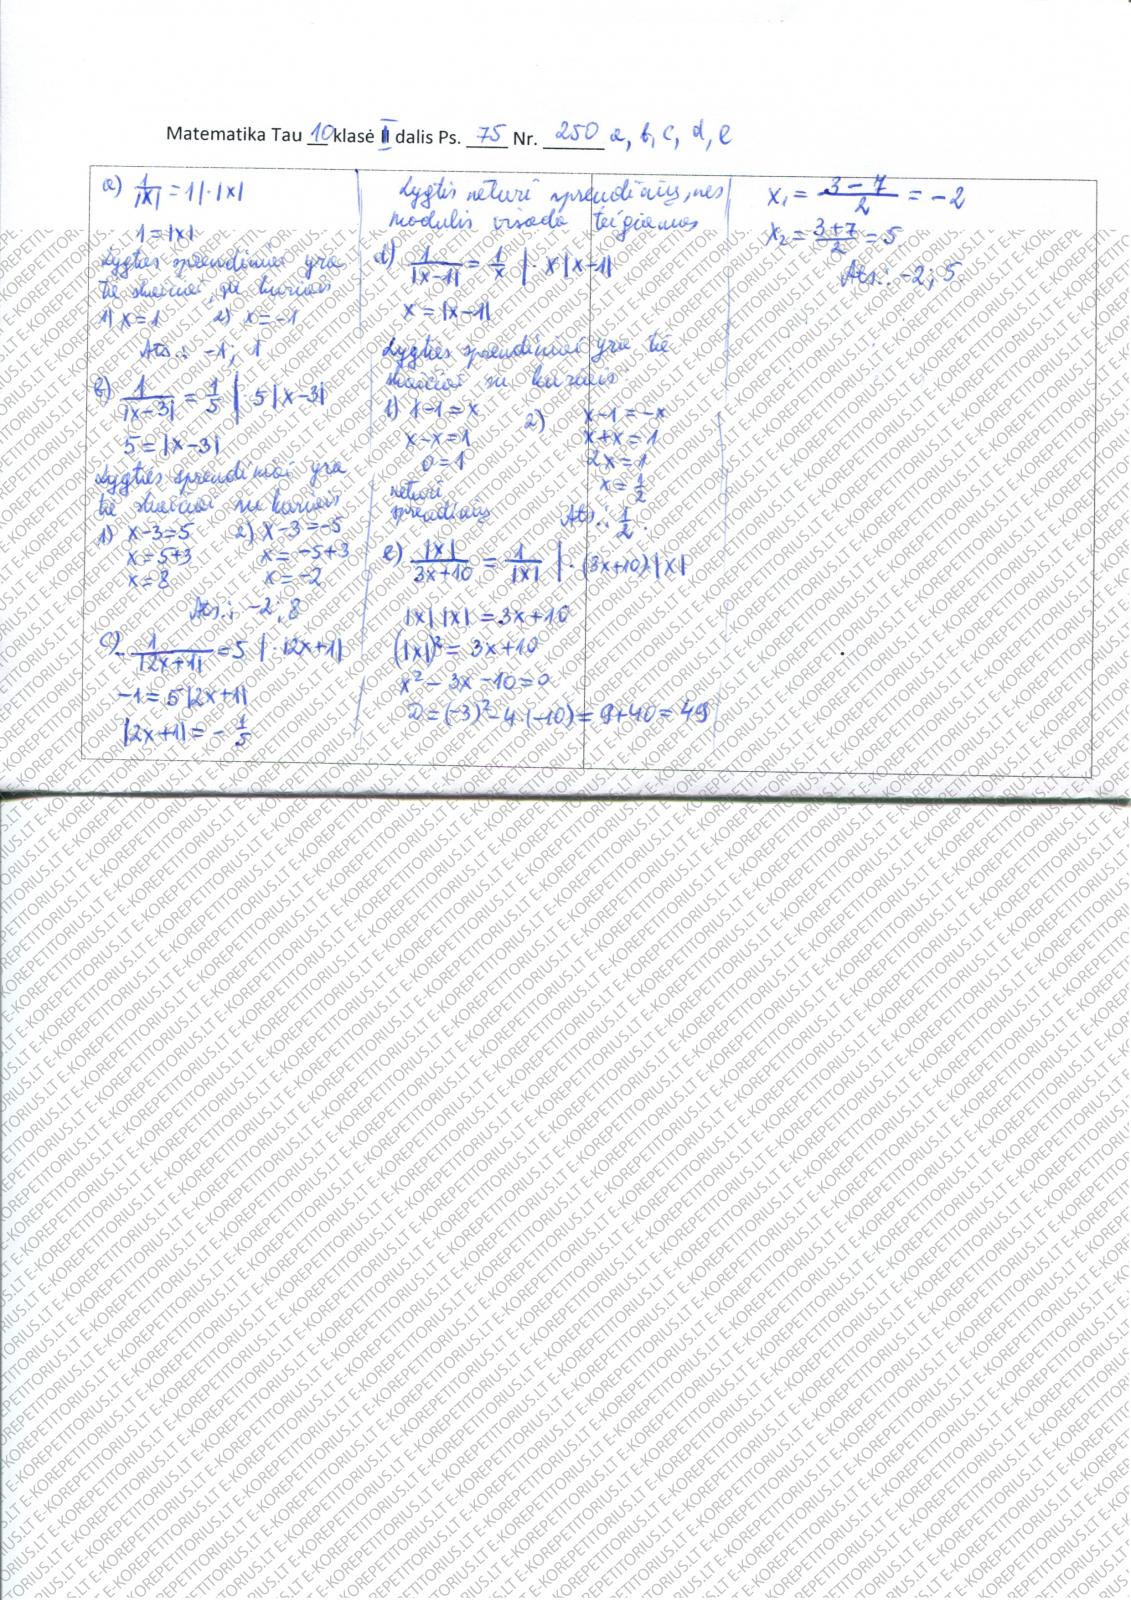 Matematika Tau 10 klasė II dalis Ps. 75 Nr. 250 a, b, c, d, e
a) 1/|x| = 1 | · |x|
1 = |x|
Lygties sprendiniai yra
tie skaičiai, su kuriais
1) x = 1 2) x = -1
Ats.: -1; 1
b) 1/|x-3| = 1/5 | · 5|x-3|
5 = |x-3|
Lygties sprendiniai yra
tie skaičiai su kuriais
1) x-3=5 2) x-3=-5
x=5+3 x=-5+3
x=8 x=-2
Ats.: -2; 8
c) -1/|2x+1| = 5 | · |2x+1|
-1 = 5|2x+1|
|2x+1| = -1/5
Lygtis neturi sprendinių, nes
modulis visada teigiamas
d) 1/|x-1| = 1/x | · x|x-1|
x = |x-1|
Lygties sprendiniai yra tie
skaičiai su kuriais
1) x-1=x 2) x-1=-x
x-x=1 x+x=1
0=1 2x=1
neturi x=1/2
sprendinių Ats.: 1/2.
e) |x|/3x+10 = 1/|x| | · (3x+10)·|x|
|x| |x| = 3x+10
(|x|)² = 3x+10
x² - 3x - 10 = 0
D = (-3)² - 4·(-10) = 9+40 = 49
x₁ = 3-7/2 = -2
x₂ = 3+7/2 = 5
Ats.: -2; 5.
E-KOREPETITORIUS.LT